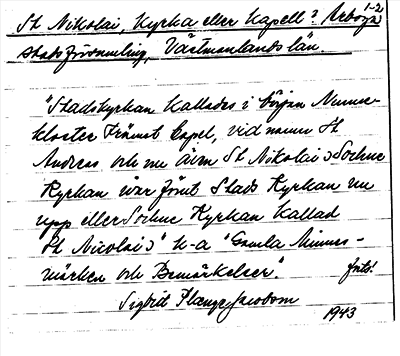 St Nikolai, Kyrka eller Kapell? Arboga 1-2
stadsförsamling, Västmanlands län.
"Stadskyrkan kallades i början Munne-
kloster Capel, vid namn St
Andreas och nu även St Nikolai Sochne
Kyrkan war förut Stads Kyrkan nu
upp eller Sochne Kyrkan kallad
St Nicolai" "Gamla Minnes-
märken och Bemärkelser".
forts!
Sigbrit Plænge Jacobson
1943